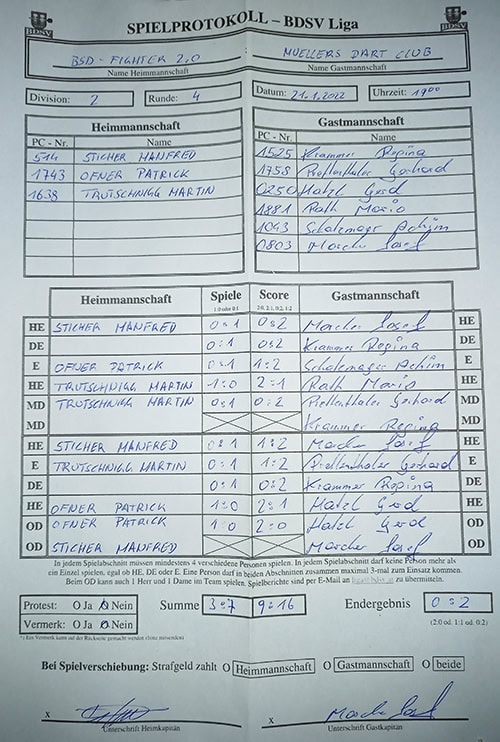 BDSV SPIELPROTOKOLL – BDSV Liga BDSV
BSD - FIGHTER 2.0 MUELLERS DART CLUB
Name Heimmannschaft Name Gastmannschaft
Division: 2 Runde: 4 Datum: 21.1.2022 Uhrzeit: 19⁰⁰
Heimmannschaft Gastmannschaft
PC - Nr. Name PC - Nr. Name
514 STICHER MANFRED 1525 Krammer Regina
1743 OFNER PATRICK 1758 Gerhard
1638 TRUTSCHNIGG MARTIN 0250 Hatzl Gerd
1881 Rath Mario
1043 Schatzmayer Achim
0803 Macher Josef
Heimmannschaft Spiele Score Gastmannschaft
1:0 oder 0:1 2:0, 2:1, 0:2, 1:2
HE STICHER MANFRED 0:1 0:2 Macher Josef HE
DE 0:1 0:2 Krammer Regina DE
E OFNER PATRICK 0:1 1:2 Schatzmayer Achim E
HE TRUTSCHNIGG MARTIN 1:0 2:1 Rath Mario HE
MD TRUTSCHNIGG MARTIN 0:1 0:2 Gerhard MD
MD Krammer Regina MD
HE STICHER MANFRED 0:1 1:2 Macher Josef HE
E TRUTSCHNIGG MARTIN 0:1 1:2 Gerhard E
DE 0:1 0:2 Krammer Regina DE
HE OFNER PATRICK 1:0 2:1 Hatzl Gerd HE
OD OFNER PATRICK 1:0 2:0 Hatzl Gerd OD
OD STICHER MANFRED Macher Josef OD
In jedem Spielabschnitt müssen mindestens 4 verschiedene Personen spielen. In jedem Spielabschnitt darf keine Person mehr als
ein Einzel spielen, egal ob HE, DE oder E. Eine Person darf in beiden Abschnitten zusammen maximal 3-mal zum Einsatz kommen.
Beim OD kann auch 1 Herr und 1 Dame im Team spielen. Spielberichte sind per E-Mail an zu übermitteln.
Protest: O Ja O Nein Summe 3:7 9:16 Endergebnis 0:2
Vermerk: O Ja O Nein (2:0 od. 1:1 od. 0:2)
*) Ein Vermerk kann auf der Rückseite gemacht werden (bitte umseitig)
Bei Spielverschiebung: Strafgeld zahlt O Heimmannschaft O Gastmannschaft O beide
x x Macher Josef
Unterschrift Heimkapitän Unterschrift Gastkapitän